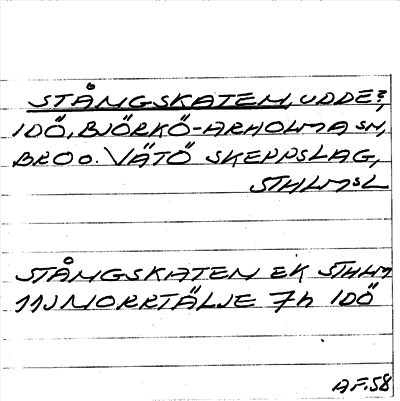 STÅNGSKATEN, UDDE?,
IDÖ, BJÖRKÖ-ARHOLMA SN,
BRO O. VÄTÖ SKEPPSLAG,
STHLMSL
STÅNGSKATEN EK STHLM
11J NORRTÄLJE 7h IDÖ
AF.58